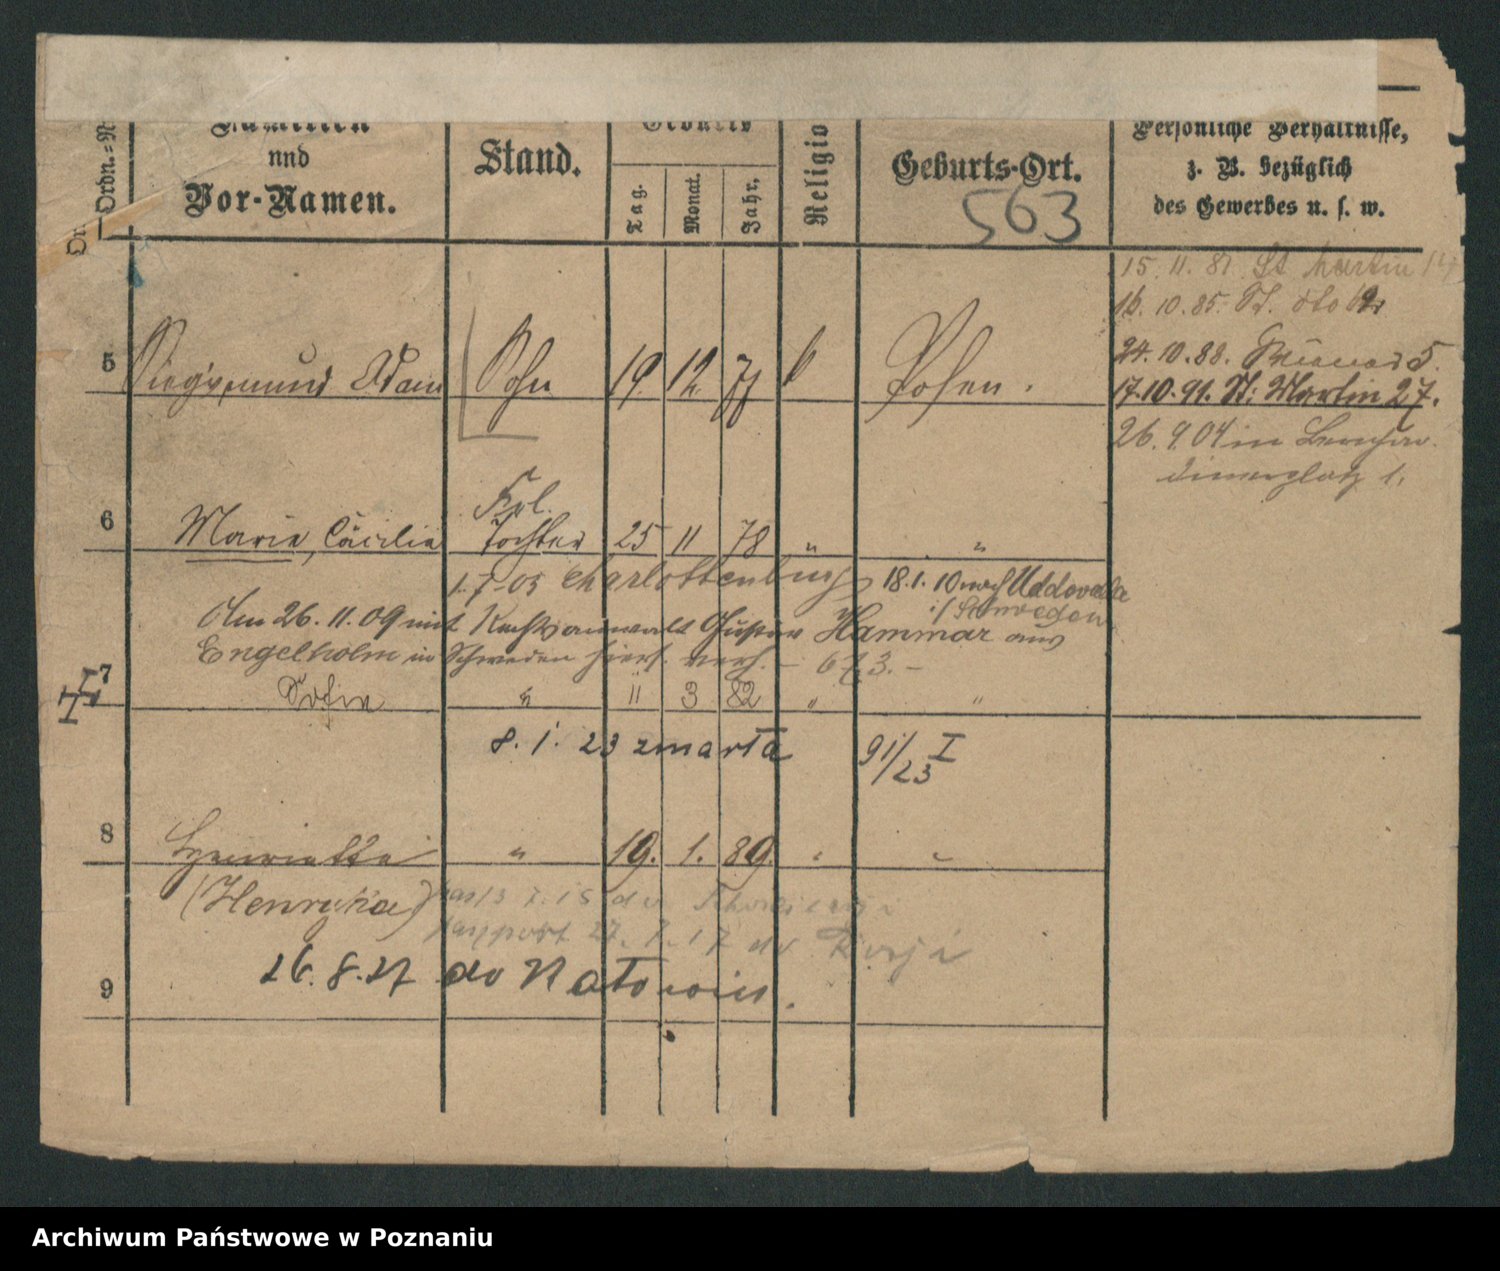 Ordn.=N
Familien
nnd
Vor-Namen.
Stand.
Geburts
Tag.
Monat.
Jahr,
Religio
Geburts-Ort.
563
Persönliche Verhältnisse,
z. B. bezüglich
des Gewerbes u. s. w.
15. 11. 81 St Martin
16. 10. 85. St.
24. 10. 88. 5.
17. 10. 91. St: Martin 27.
26. 9. 04 in Bernhar
dinerplatz 1.
5 Siegismund Adam Sohn 19. 12 77 k Posen.
6 Marie, Cäcilie Frl. Tochter 25 11 78 " "
1.7.05 Charlottenburg 18.1.10 nach Uddevalla
i/Schweden
Am 26. 11. 09 mit Rechtsanwalt Gustav Hammar aus
Engelholm in Schweden hiers. verh. – 673. –
7 Sofie " 11 3 82 " "
8. 1. 23 zmarła 91/23 I
8 Henriette " 19. 1. 89. " "
(Henryka)
7. 15 do
paszport 27. 7. 17 do Rosji
26. 8. 27 do Katowic.
9
Archiwum Państwowe w Poznaniu